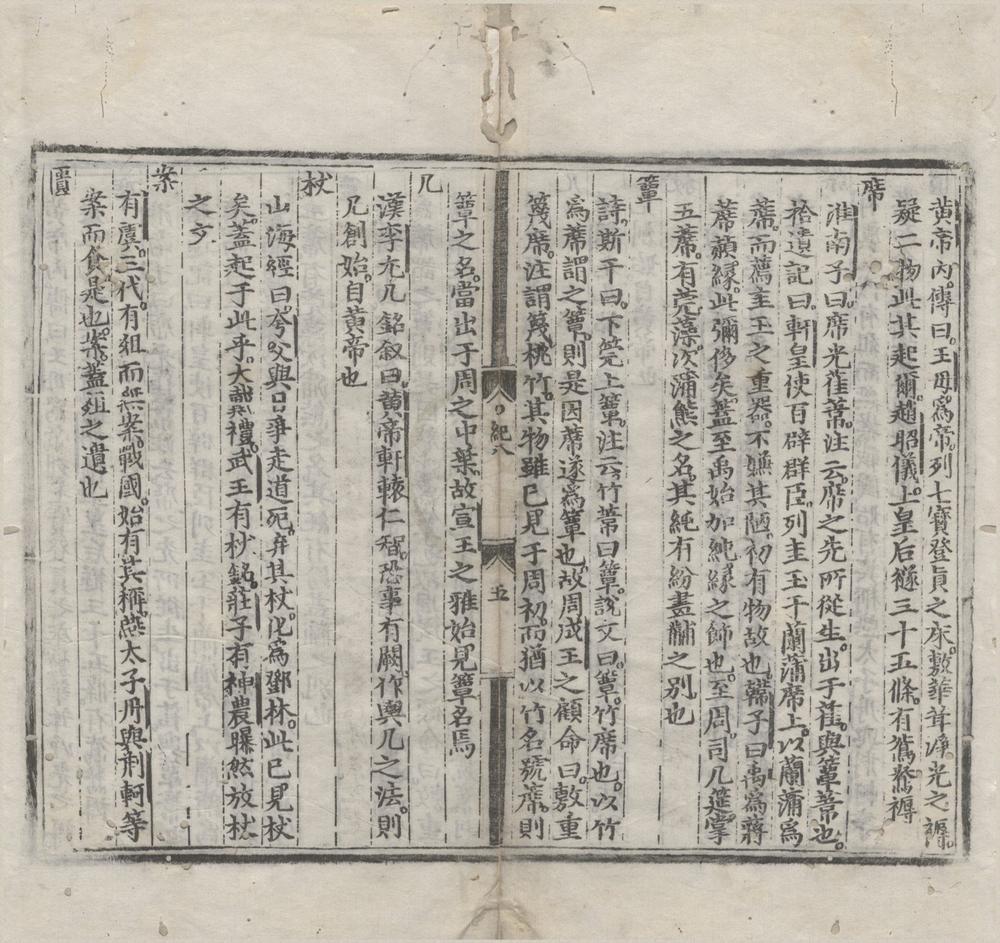 黃帝内傳曰王母爲帝列七寶登眞之床敷華茸淨光之褥
疑二物此其起爾趙昭儀上皇后襚三十五條有鴛鴦褥
席
淮南子曰席先雚葦注云席之先所從生出于雚與簟葦也
拾遺記曰軒皇使百辟群臣列圭玉于蘭蒲席上以蘭蒲爲
席而薦圭玉之重器不嫌其陋初有物故也韓子曰禹爲蔣
席頗緣此彌侈矣蓋至禹始加純緣之飾也至周司几筵掌
五席有莞藻次蒲熊之名其純有紛畫黼之别也
簟
詩斯干曰下莞上簟注云竹葦曰簟說文曰簟竹席也以竹
爲席謂之簟則是因席遂爲簟也故周成王之顧命曰敷重
篾席注謂篾桃竹其物雖已見于周初而猶以竹名號席則
紀八
五
簟之名當出于周之中葉故宣王之雅始見簟名焉
几
漢李尤几銘叙曰黃帝軒轅仁智恐事有闕作輿几之法則
几創始自黃帝也
杖
山海經曰夸父與日爭走道死弃其杖化爲鄧林此已見杖
矣蓋起于此乎大戴禮武王有杖銘莊子有神農曝然放杖
之文
案
有虞三代有俎而無案戰國始有其稱燕太子丹與荆軻等
案而食是也案蓋俎之遺也